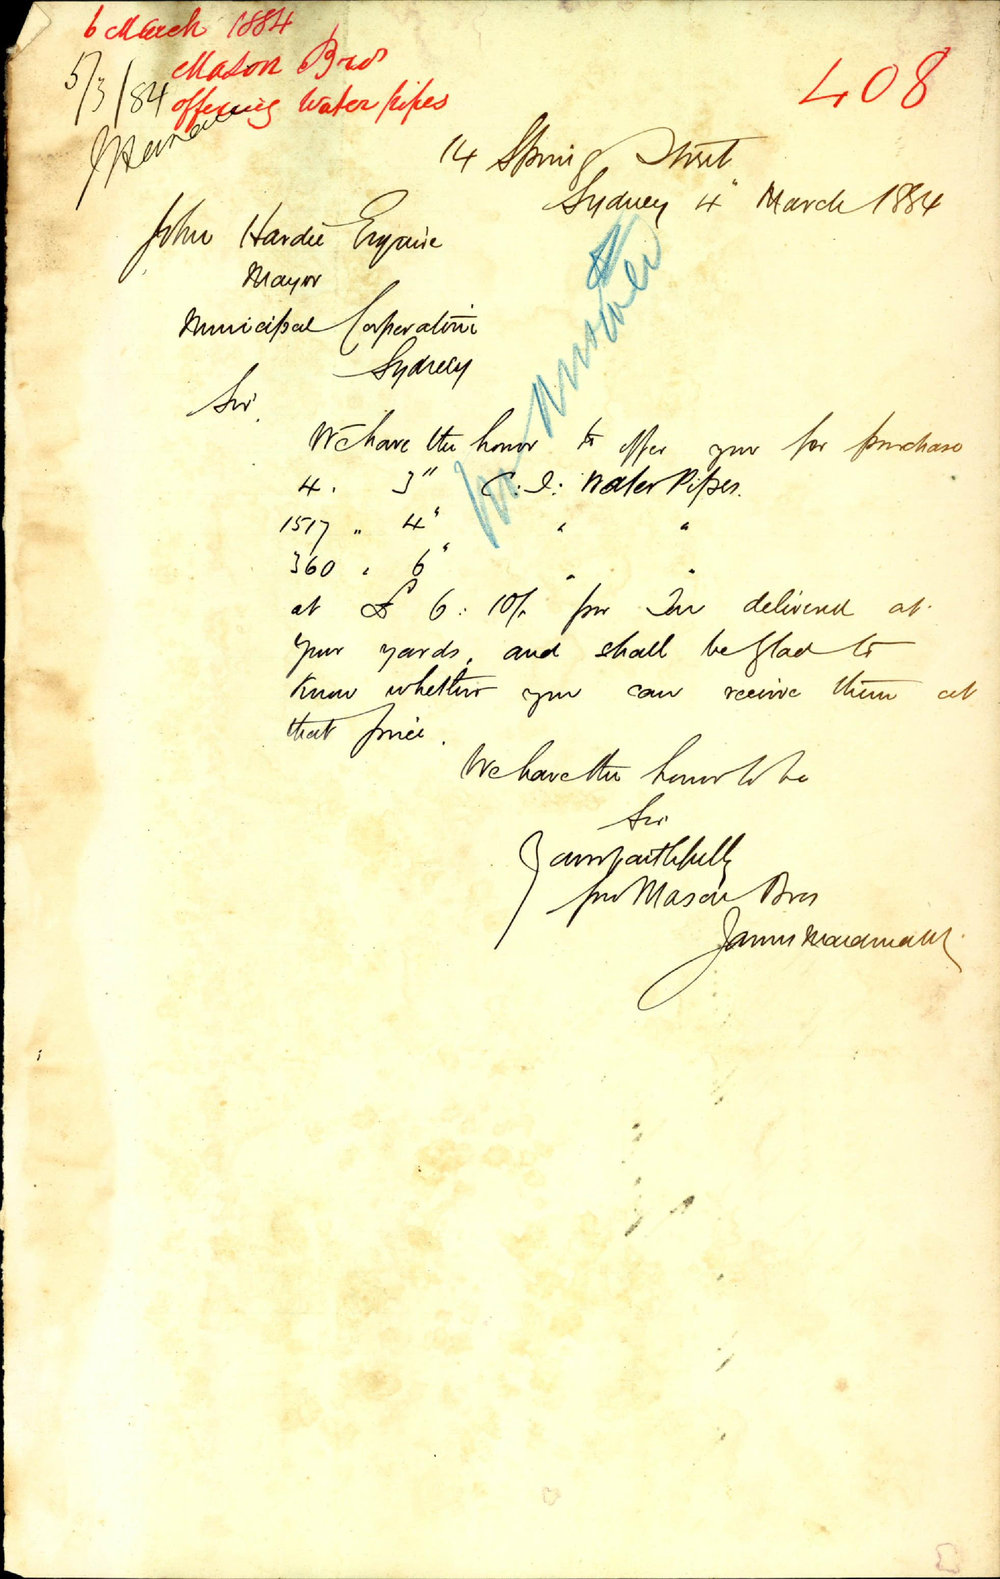 6 March 1884
Mason Bros
offering Water pipes
5/3/84
408
14 Spring Street
Sydney 4" March 1884
John Hardie Esquire
Mayor
Municipal Corporation
Sydney
Sir,
We have the honor to offer you for purchase
4 . 3" C: I: Water Pipes.
1517 " 4" " "
360 " 6" " "
at £ 6: 10/- per Ton delivered at
your yards, and shall be glad to
know whether you can receive them at
that price.
We have the honor to be
Sir
Yours faithfully
pro Mason Bros
James